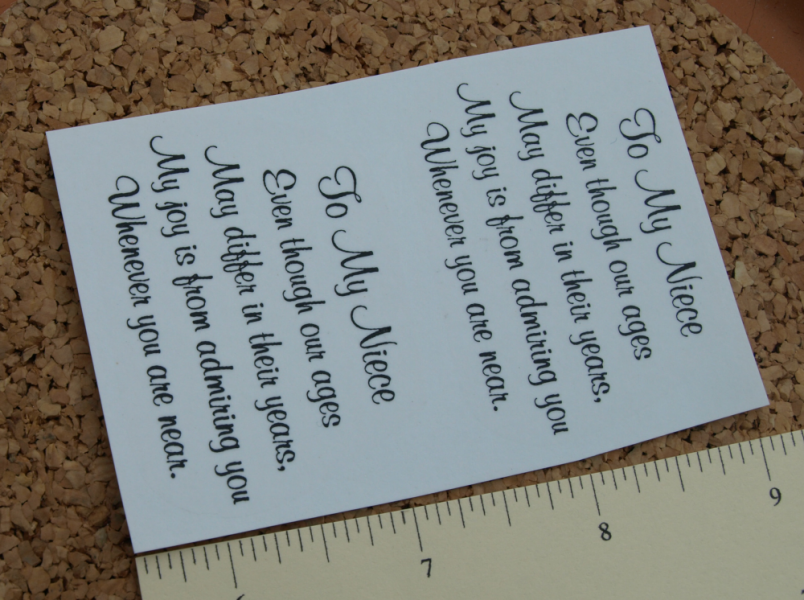 To My Niece
Even though our ages
May differ in their years,
My joy is from admiring you
Whenever you are near.
To My Niece
Even though our ages
May differ in their years,
My joy is from admiring you
Whenever you are near.
7
8
9